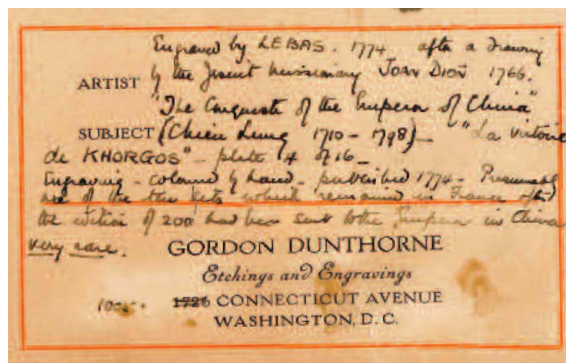 Engraved by LEBAS. 1774 after a drawing
ARTIST by the Jesuit missionary JOAN DION 1766.
"The Conquests of the Emperor of China"
SUBJECT (Chien Lung 1710-1798)- "La victoire
de KHORGOS" - plate 4 of 16 -
Engraving - coloured by hand - published 1774 -
one of the sets which remained in France after
the edition of 200 had been sent to the Emperor in China
very rare.
GORDON DUNTHORNE
Etchings and Engravings
1726 CONNECTICUT AVENUE
WASHINGTON, D. C.